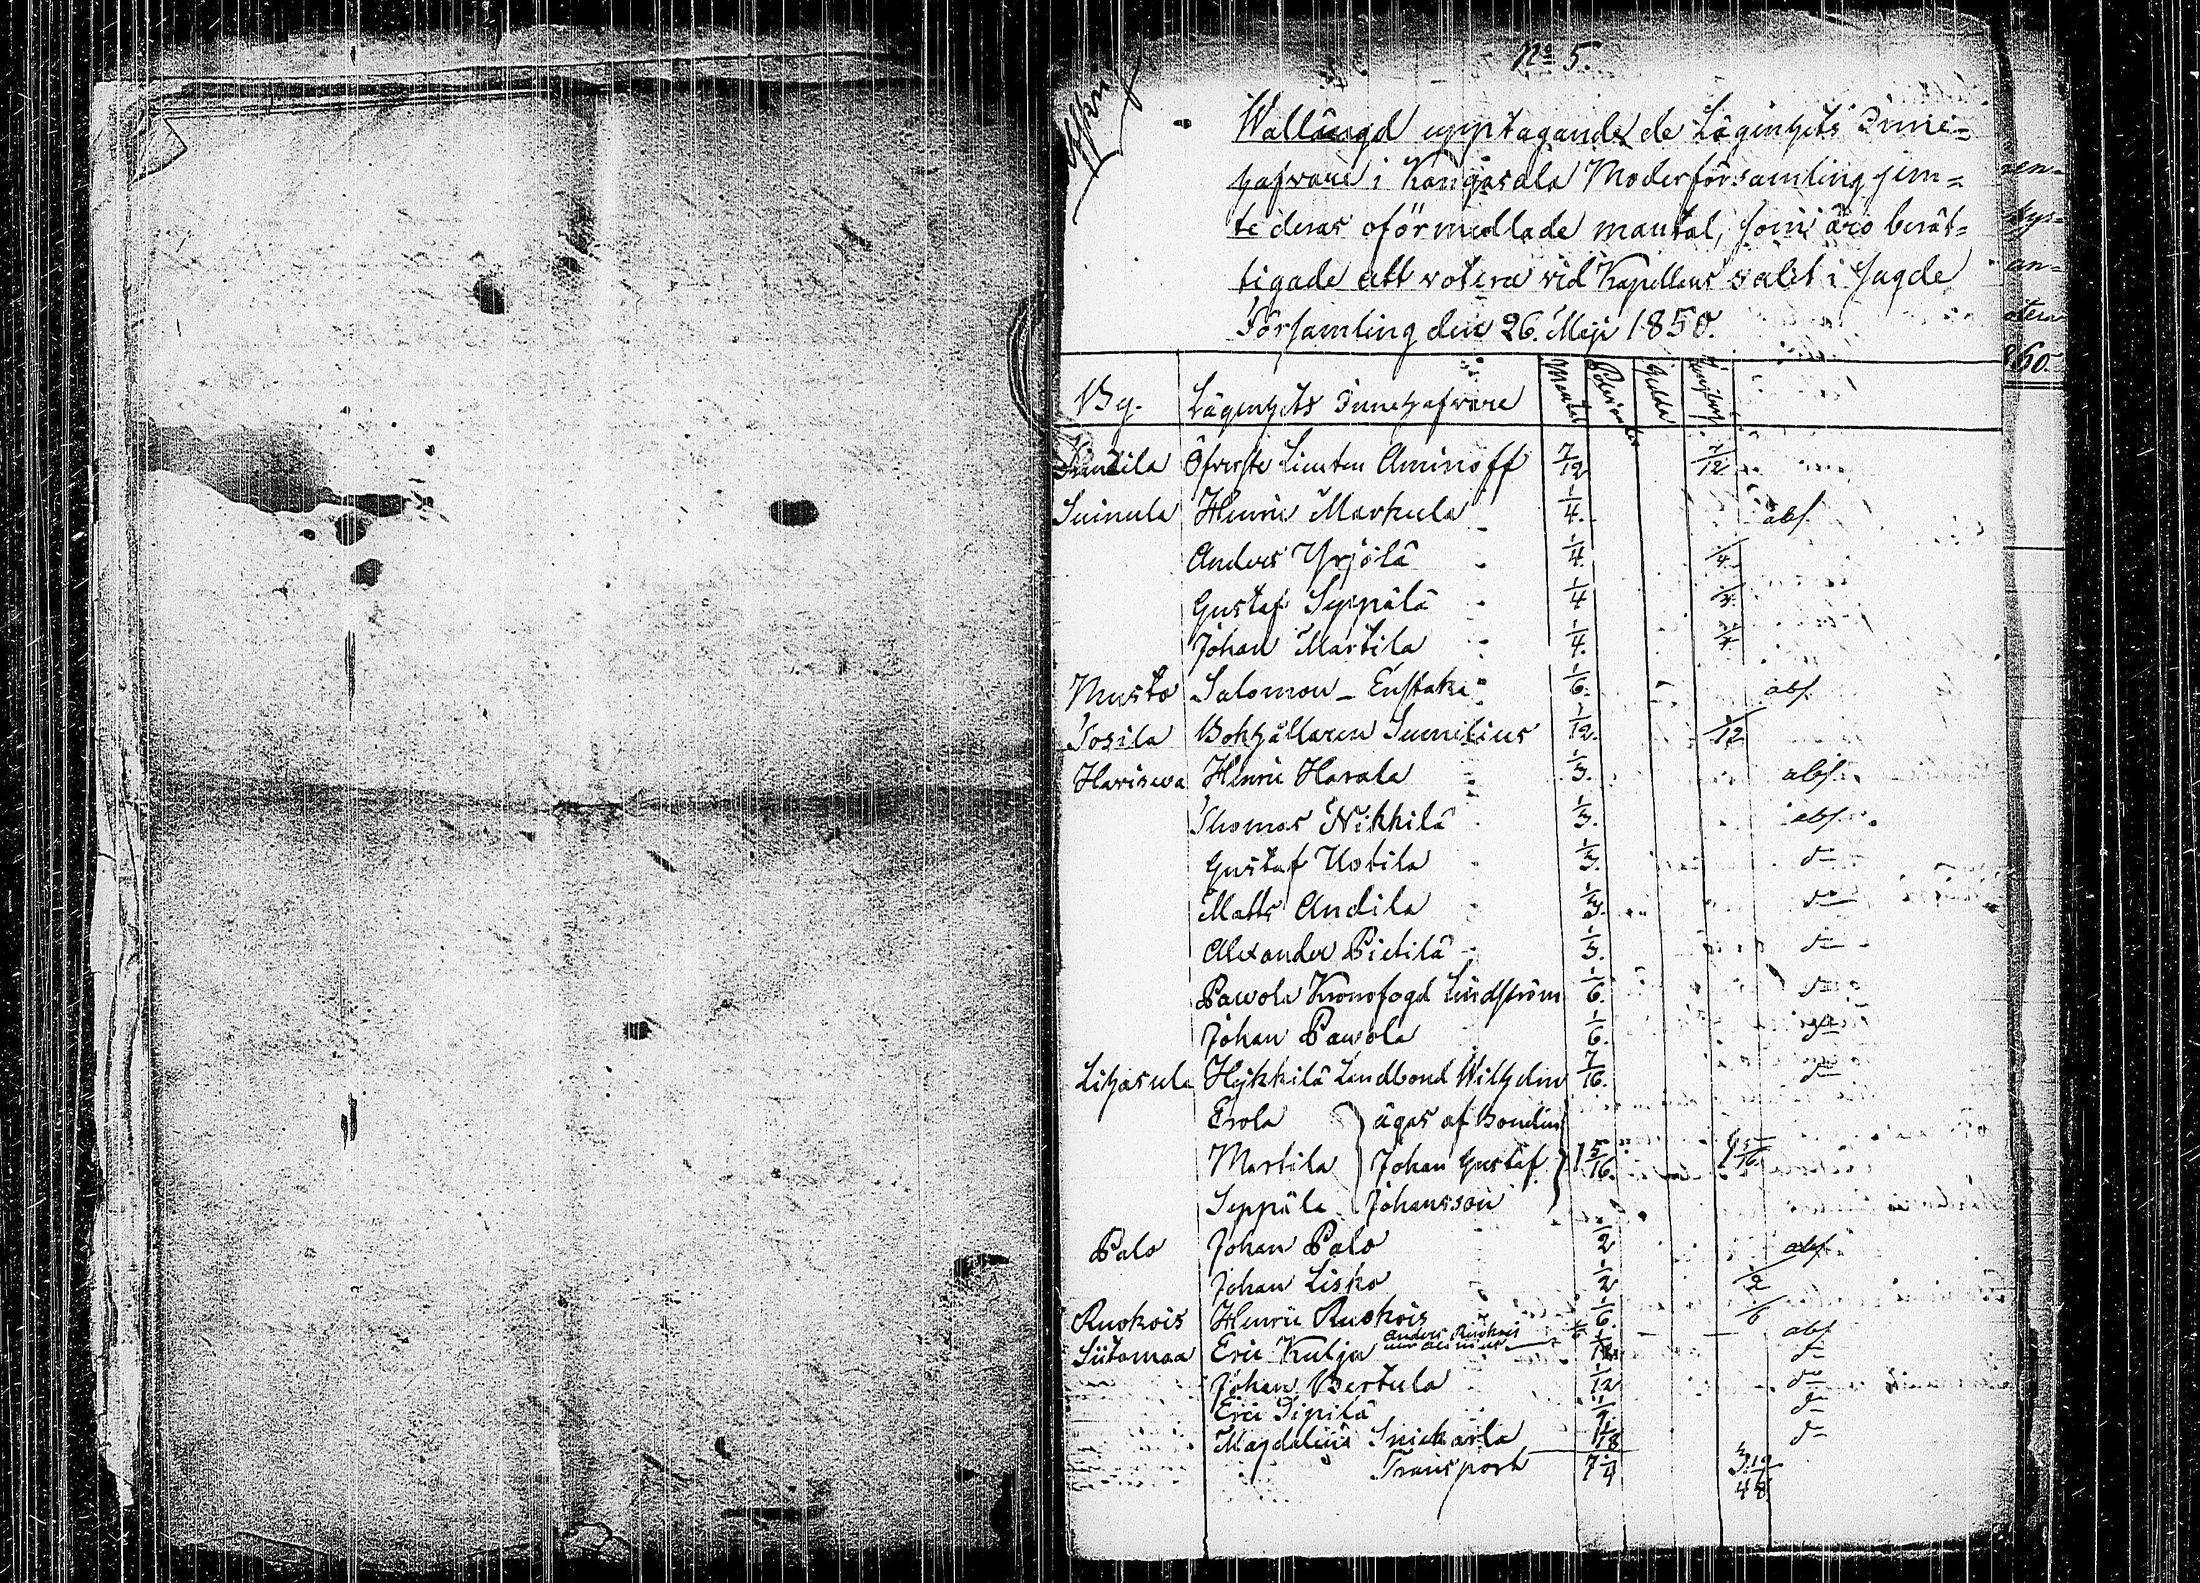 No 5.
Wallängd upptagande de Lägenhets Inne=
hafvare i Kangasala Moderförsamling jem=
te deras oförmedlade mantal, som äro berät=
tigade att votera vid Kapellans valet i sagde
Församling den 26. Maji 1850.
By. Lägenhets Innehafvare Mantal
Öfverste Lieuten Aminoff 7/12 7/12
Suinula Henric Markula 1/4. abs.
Anders Yrjölä 1/4 1/4
Gustaf Seppälä 1/4 1/4
Johan Martila 1/4. 1/4
Musto Salomon Eustaki 1/6. abs.
Tosila Bokhållaren Sumelius 1/12. 1/12
Harisewa Henric Harala 1/3. abs.
Thomas Nikkilä 1/3. abs.
Gustaf Uotila 1/3. do
Matts Andila 1/3. do
Alexander Pietilä 1/3. do
Pawola Kronofogd Lindström 1/6. do
Johan Pawola 1/6. do
Lihasula Heikkilä Landbond Wilhelm 7/16. do
Erola ägas af Bonden
Martila Johan Gustaf 1 5/16. 1 5/16.
Seppälä Johansson
Palo Johan Palo 1/2 abs.
Johan Lisko 1/2 1/2
Ruokois Henric Ruokois 1/6. 1/6
Anders Ruokois 1/6 abs
Siitamaa Eric Kulju do
Johan Bertula 1/12 do
Eric Sipilä do
Magdalena Snickarla 1/18 do
Transport 7 1/4